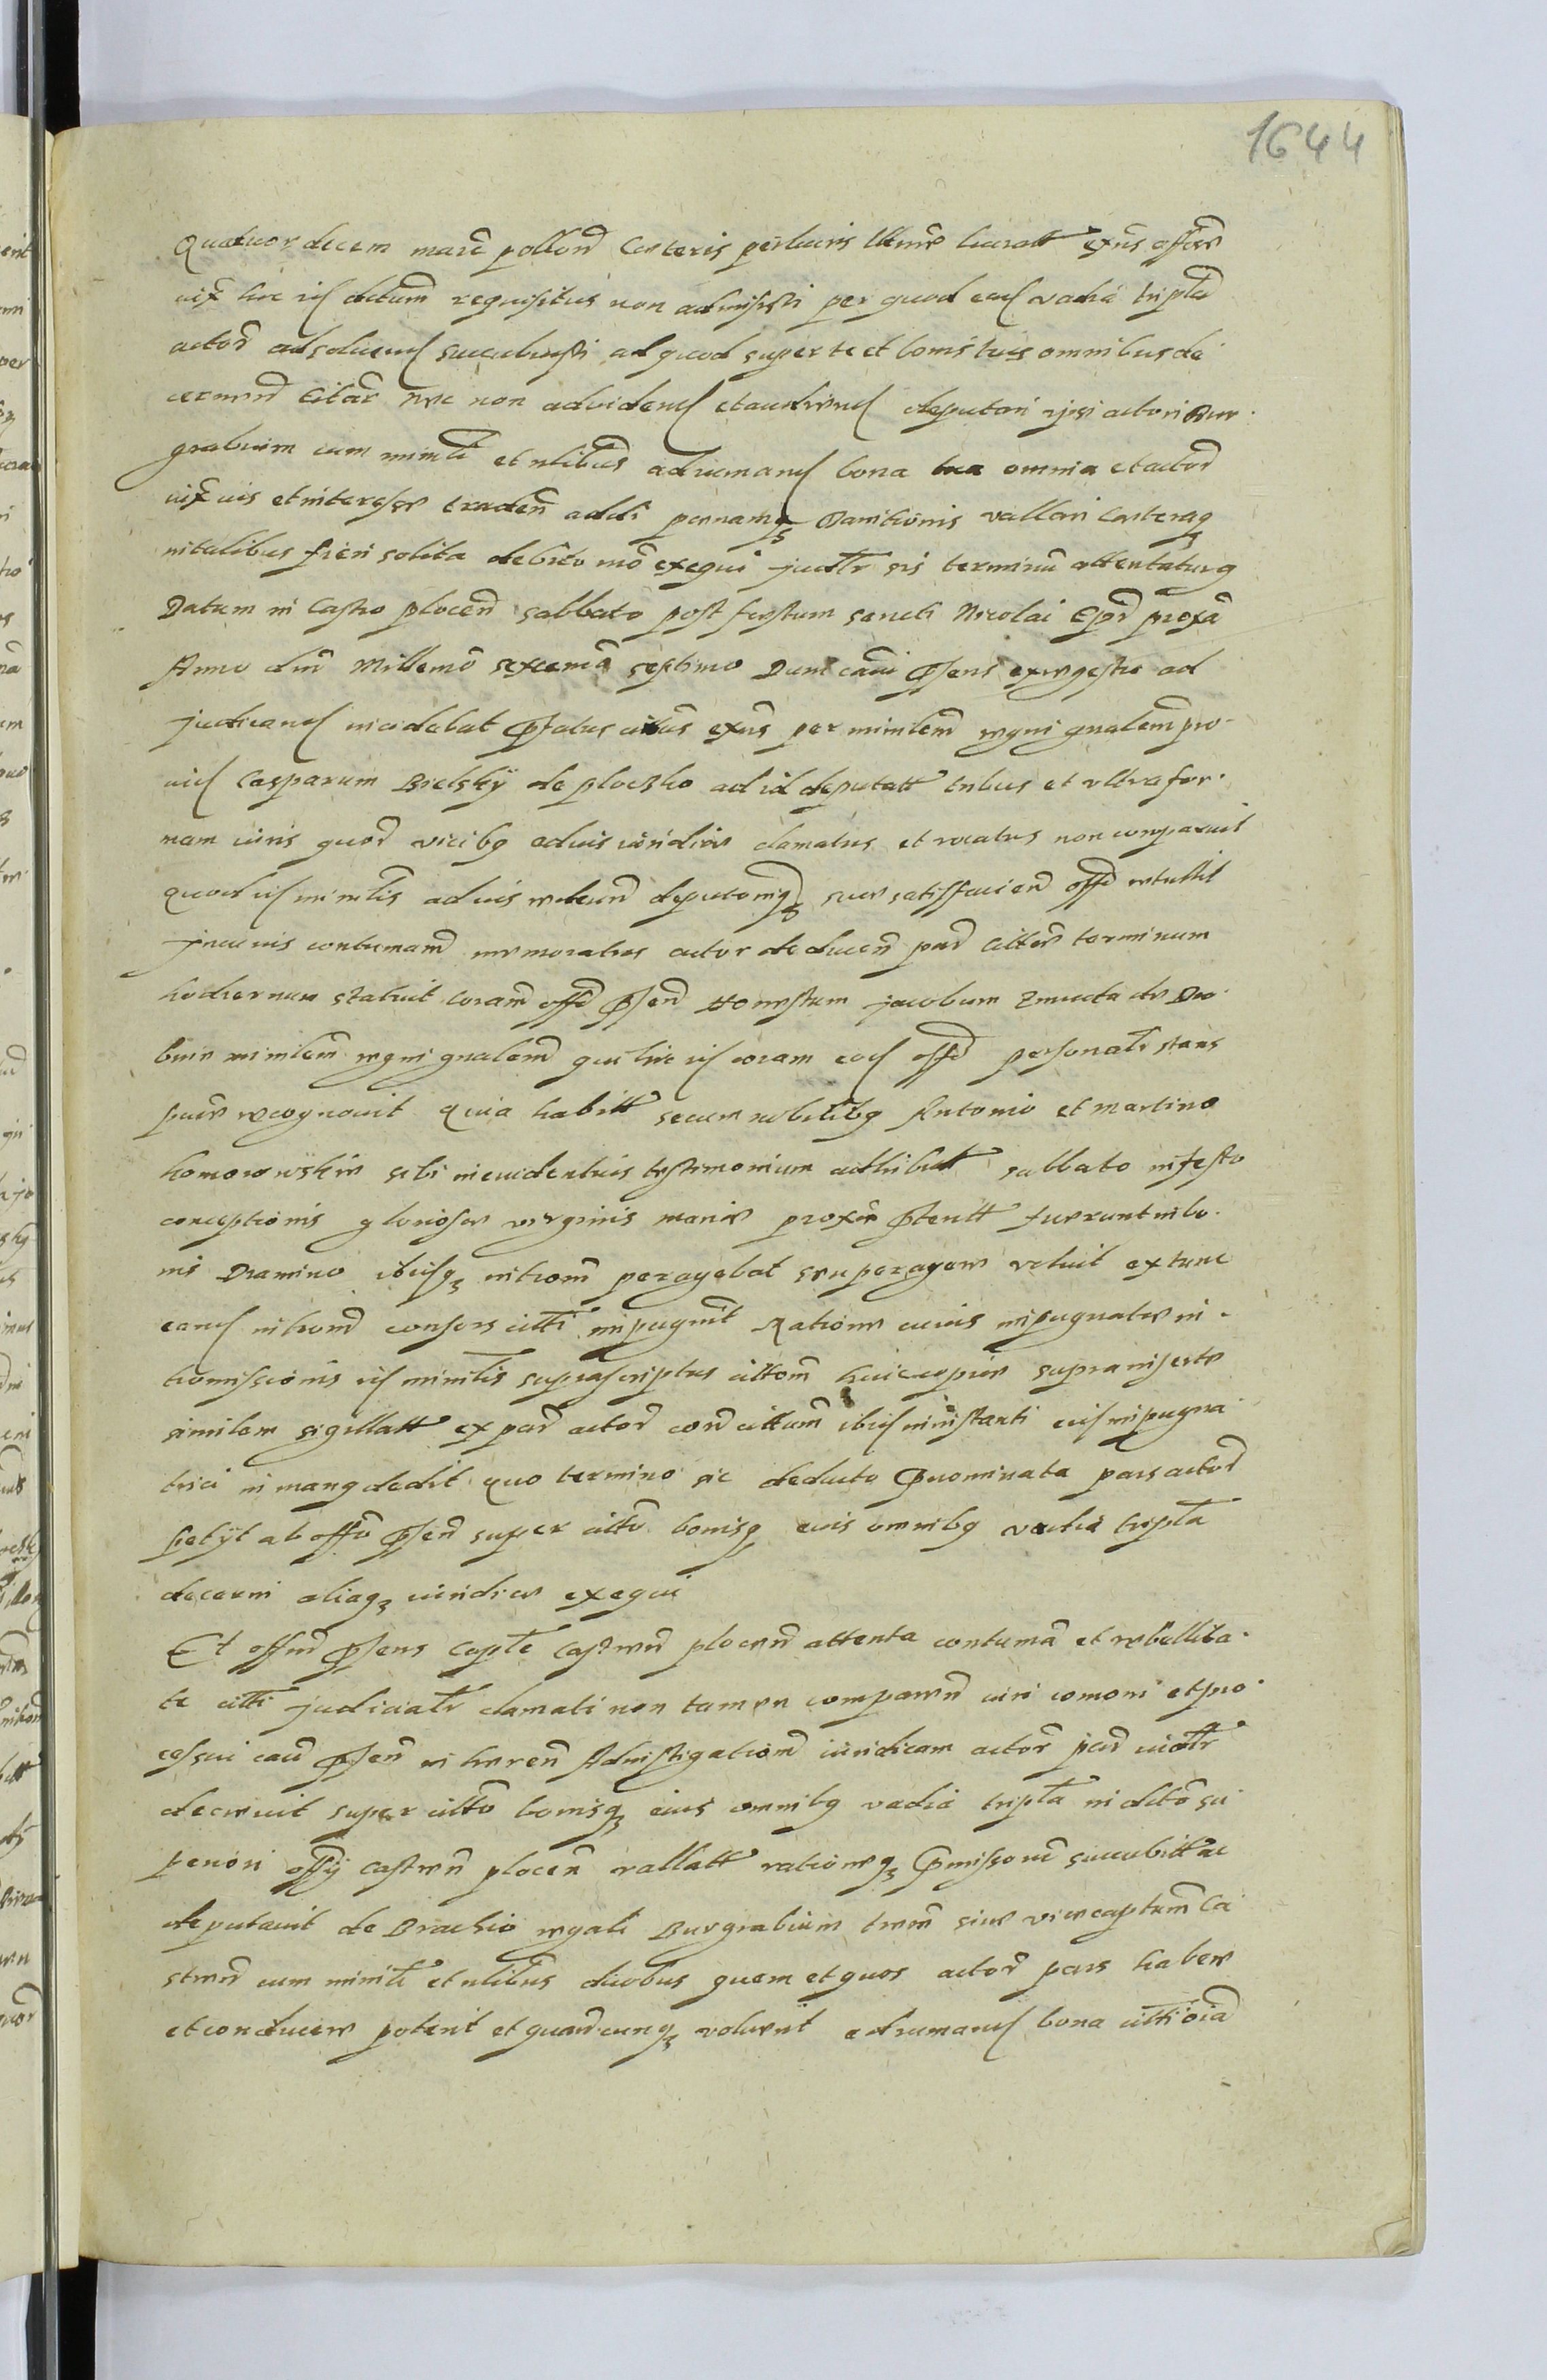 1644
Quatuor decem marc̃ pollonͥ Cęteris per lucris lrmͥe lucratt exñs officͥ
requisitus non admisisti per quod eaɗ vadiã tripla
actorͥ ad solvenɗ succubuisti ad quod super te et bonis tuis omnibus de
cernenɗ citar̃ nec non ad videnɗ et audienɗ deputari ipsi actori Bur-
grabium cum ministͥ et nlibus ad rumanɗ bona tua omnia et actorͥ
vix eius et interesse traden̄ addi penamqꝫ Banitionis vallari Cęteraqꝫ
in talibus fieri solita debito mõ exequi judͥr sis terminũ attentaturꝯ
Datum in Castro plocen̄ sabbato post festum sancti Nicolai Epͥ proxã
Anno dnͥi Millemõ sexcemõ septimo Dum cau͂ p̄sens ex regestro ad
judicanɗ incidebat p̄fatus citatus exñs per minlem regni gnalem pro-
viɗ Casparum Bielskÿ de ploczko ad id deputatt tribus et ultra for-
mam iuris quor̄ vicibꝯ ad ius iuridice clamatus et vocatus non comparuit
quod iɗ minlis ad ius rediens deputoniqꝫ sue satisfaciend offͥo retullit
In cuius contumamͥ memoratus actor deducen̄ parͥ citte terminum
hodiernum statuit coram offͥo p̄sen̄ Honestum Jacobum Zmuda de Dro-
bnin minlem regni gnalem qui hic iɗ coram eoɗ offͥo personalr̄ stans
sponte recognovit Quia habitt secum nobilibꝯ Antonio et Martino
Komorowskie sibi in evidentius testimonium adhibitt sabbato in festo
conceptionis gloriosę virginis marię proxim p̄teritt fuerunt in bo-
nis Dramino ibiɗqꝫ intromͥ peragebat seu peragere voluit ex tunc
eanɗ introm̄ consors citti impugnͥt Ratione cuius impugnatę in-
tromissionis iɗ minlis suprascriptus cittom̄ huic copię supra insertę
similem sigillatt ex parͥ actorͥ con̄ cittum̄ ibiɗ instanti eiɗ impugna
trici in manꝯ dedit quo termino sic deducto p̄nominata pars actorͥ
petÿt ab offͥo p̄sen̄ super citto bonisqꝫ eius omnibꝯ vadia tripla
decerni aliaqꝫ iuridice exequi
Et offm̄ p̄sens Capͥle Castren̄ plocen̄ attenta contumã et rebellita-
te citti judicialr̄ clamati non tamen comparen̄ iuri comoni et pro-
cessui cau͂ p̄sen̄ in hęren̄ Advistigationͥ iuridicam actorͥ parͥ
decrevit super citto bonisqꝫ eius omnibꝯ vadia tripla in dcto su
periori offÿ Castren̄ plocen̄ vallatt rationeqꝫ p̄missorũ succubitt ac
deputavit de Brachio regali Burgrabium terreñ sive vicecaptum Ca
stren̄ cum ministͥ et nlibus duobus quem et quos actorͥ pars habere
et conducere poterit et quan̄cunqꝫ voluerit ad rumanɗ bona citti oĩa